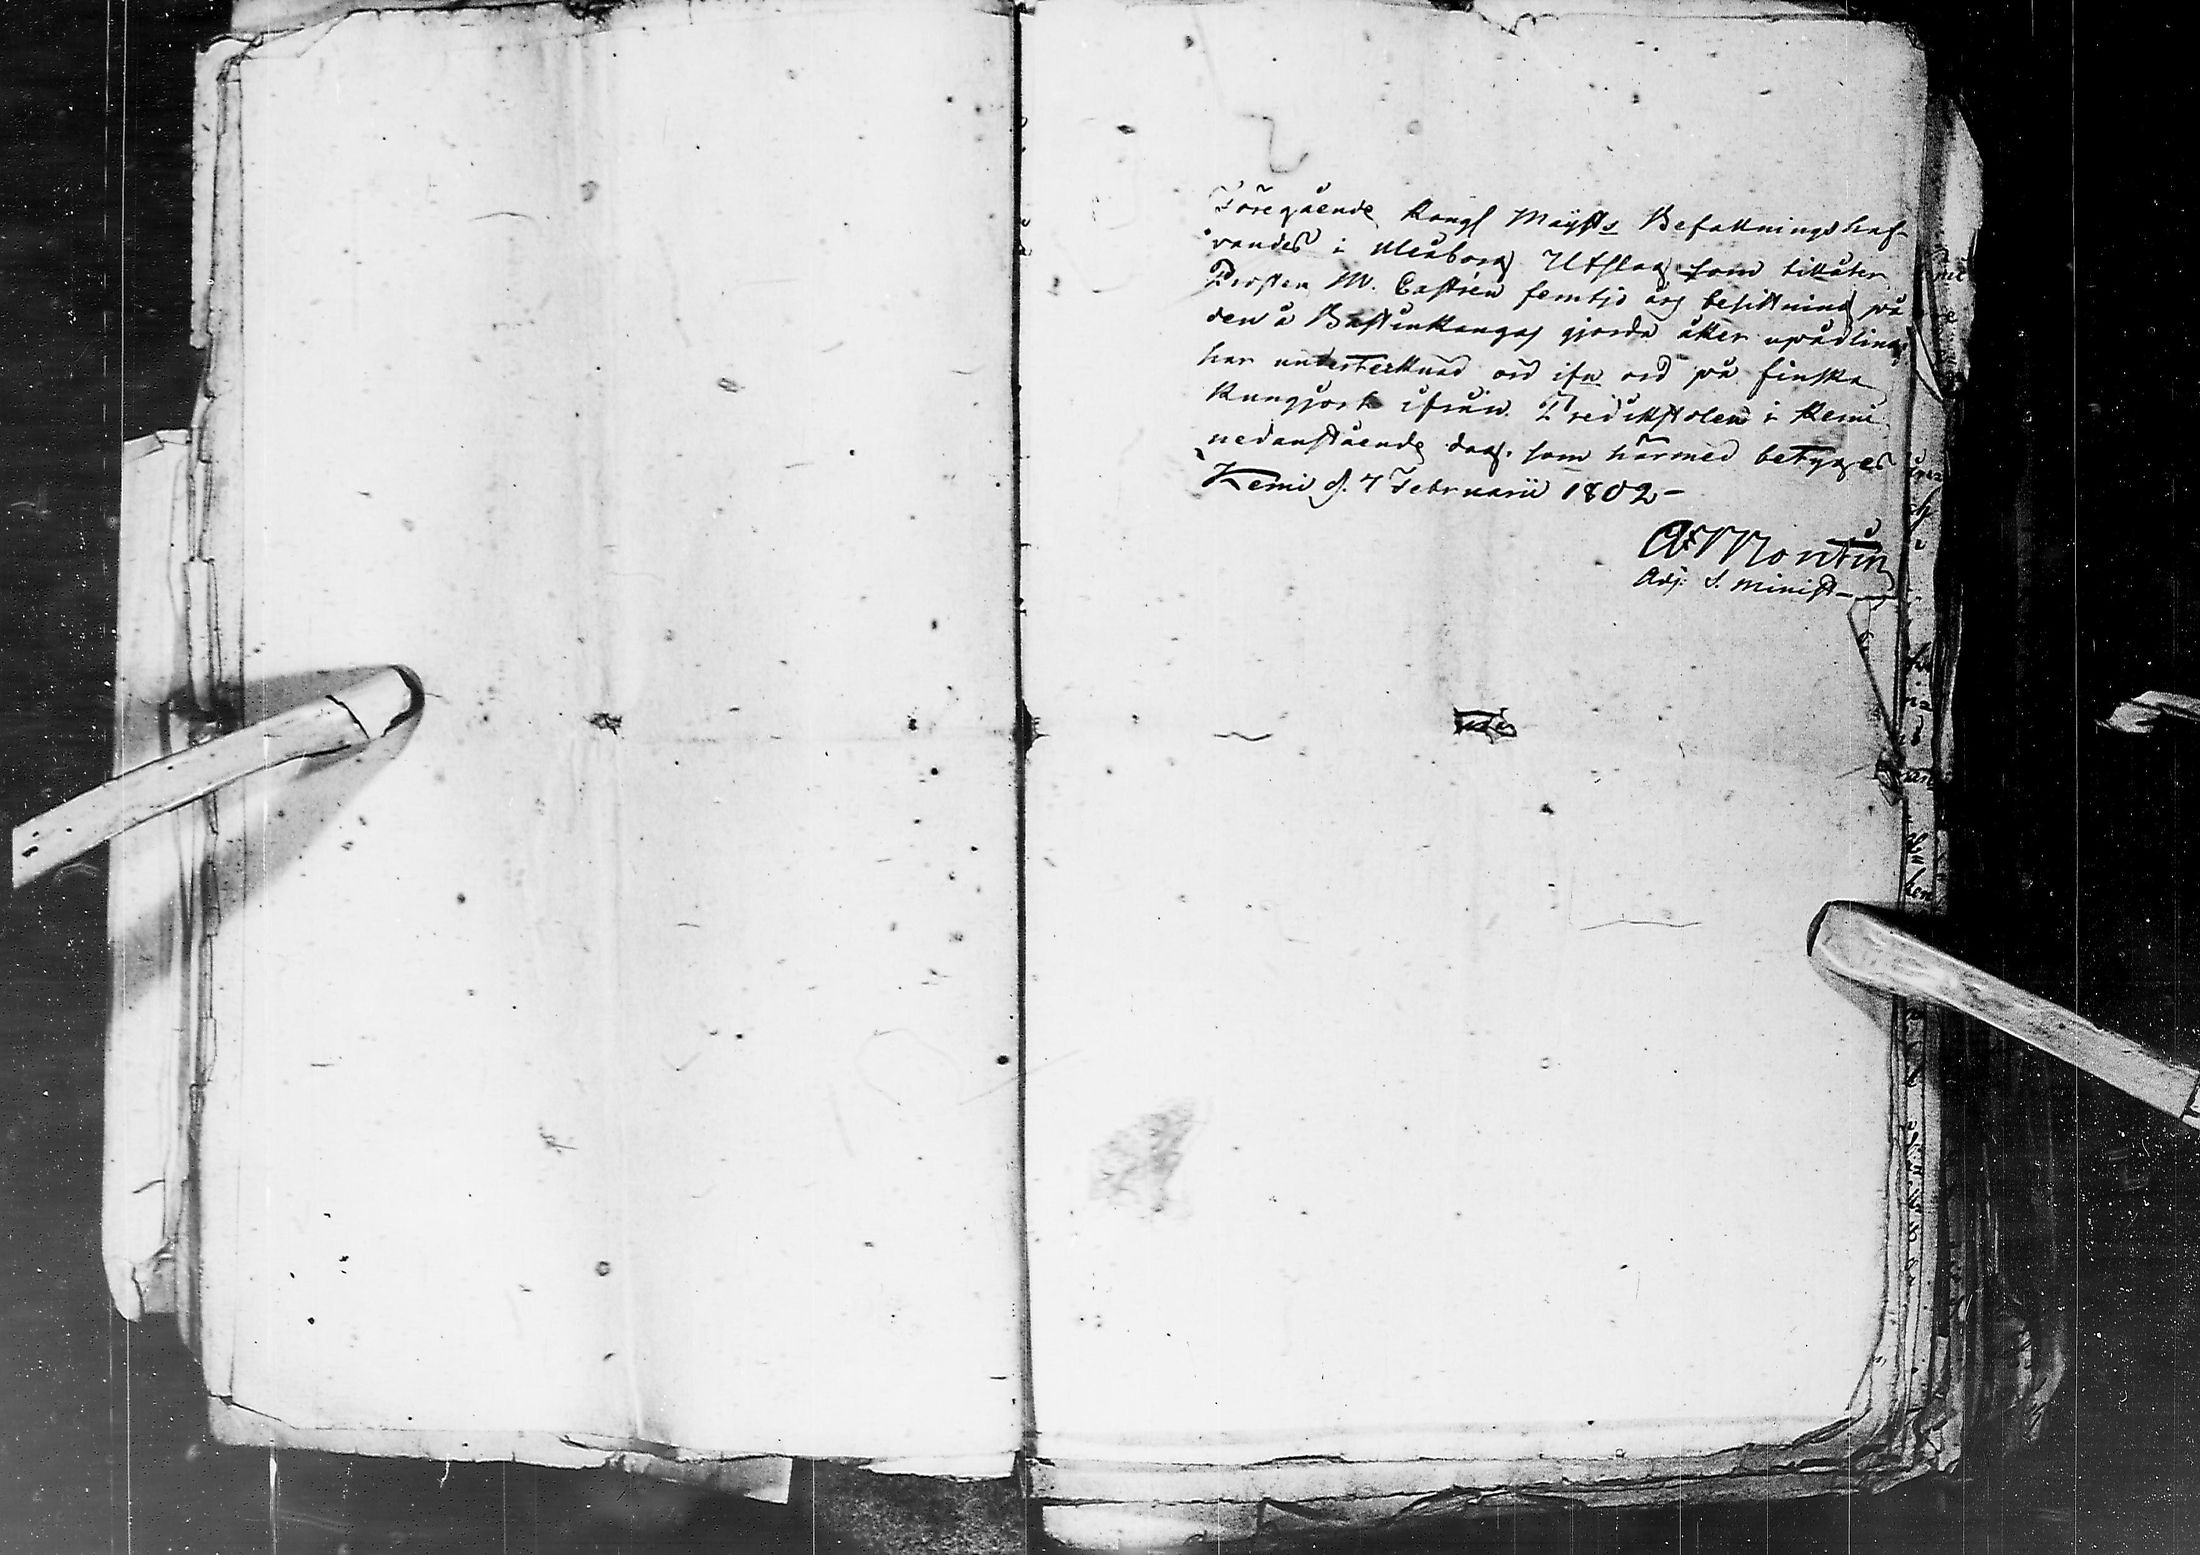 Föregående Kongl Maijsts Befallningshaf-
vandes i Uleåborg Utslag som tillåter
Prosten M. Castrén femtjo års besittning på
den å Bastinkangas gjorde åker upådling
har undertecknad ord ifrn ord på finska
kungjort ifrån Predikstolen i Kemi
nedanstående dag. som härmed betyges
Kemi d. 7 Februarii 1802-
Montin
Adj: S. Minist-